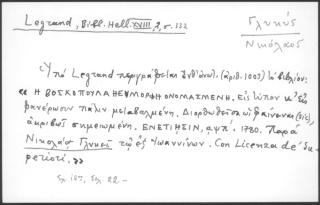 Legrand, Bibl. Hell. XVIII, 2, σ. 332
Γλυκύς
Νικόλαος
Ὑπὸ Legrand περιγράφεται ἐνθ' ἀνωτ. (ἀριθ. 1007) τὸ βιβλίον:
« Η ΒΟΣΚΟΠΟΥΛΑ Η ΕΥΜΟΡΦΗ ΟΝΟΜΑΣΜΕΝΗ. Εἰς τύπον κ'
φανέρωσιν πάλιν μεταβαλμένη. Διορθωθεῖσα ὡς φαίνεται (sic)
ἀκριβῶς σημειωμένη. ΕΝΕΤΙΗΣΙΝ, αψπ'. 1780. Παρὰ
Νικολάῳ Γλυκεῖ τῷ ἐξ Ἰωαννίνων. Con Licenza de' Su-
periori. »
Σχ. 16ον, Σελ. 22 –